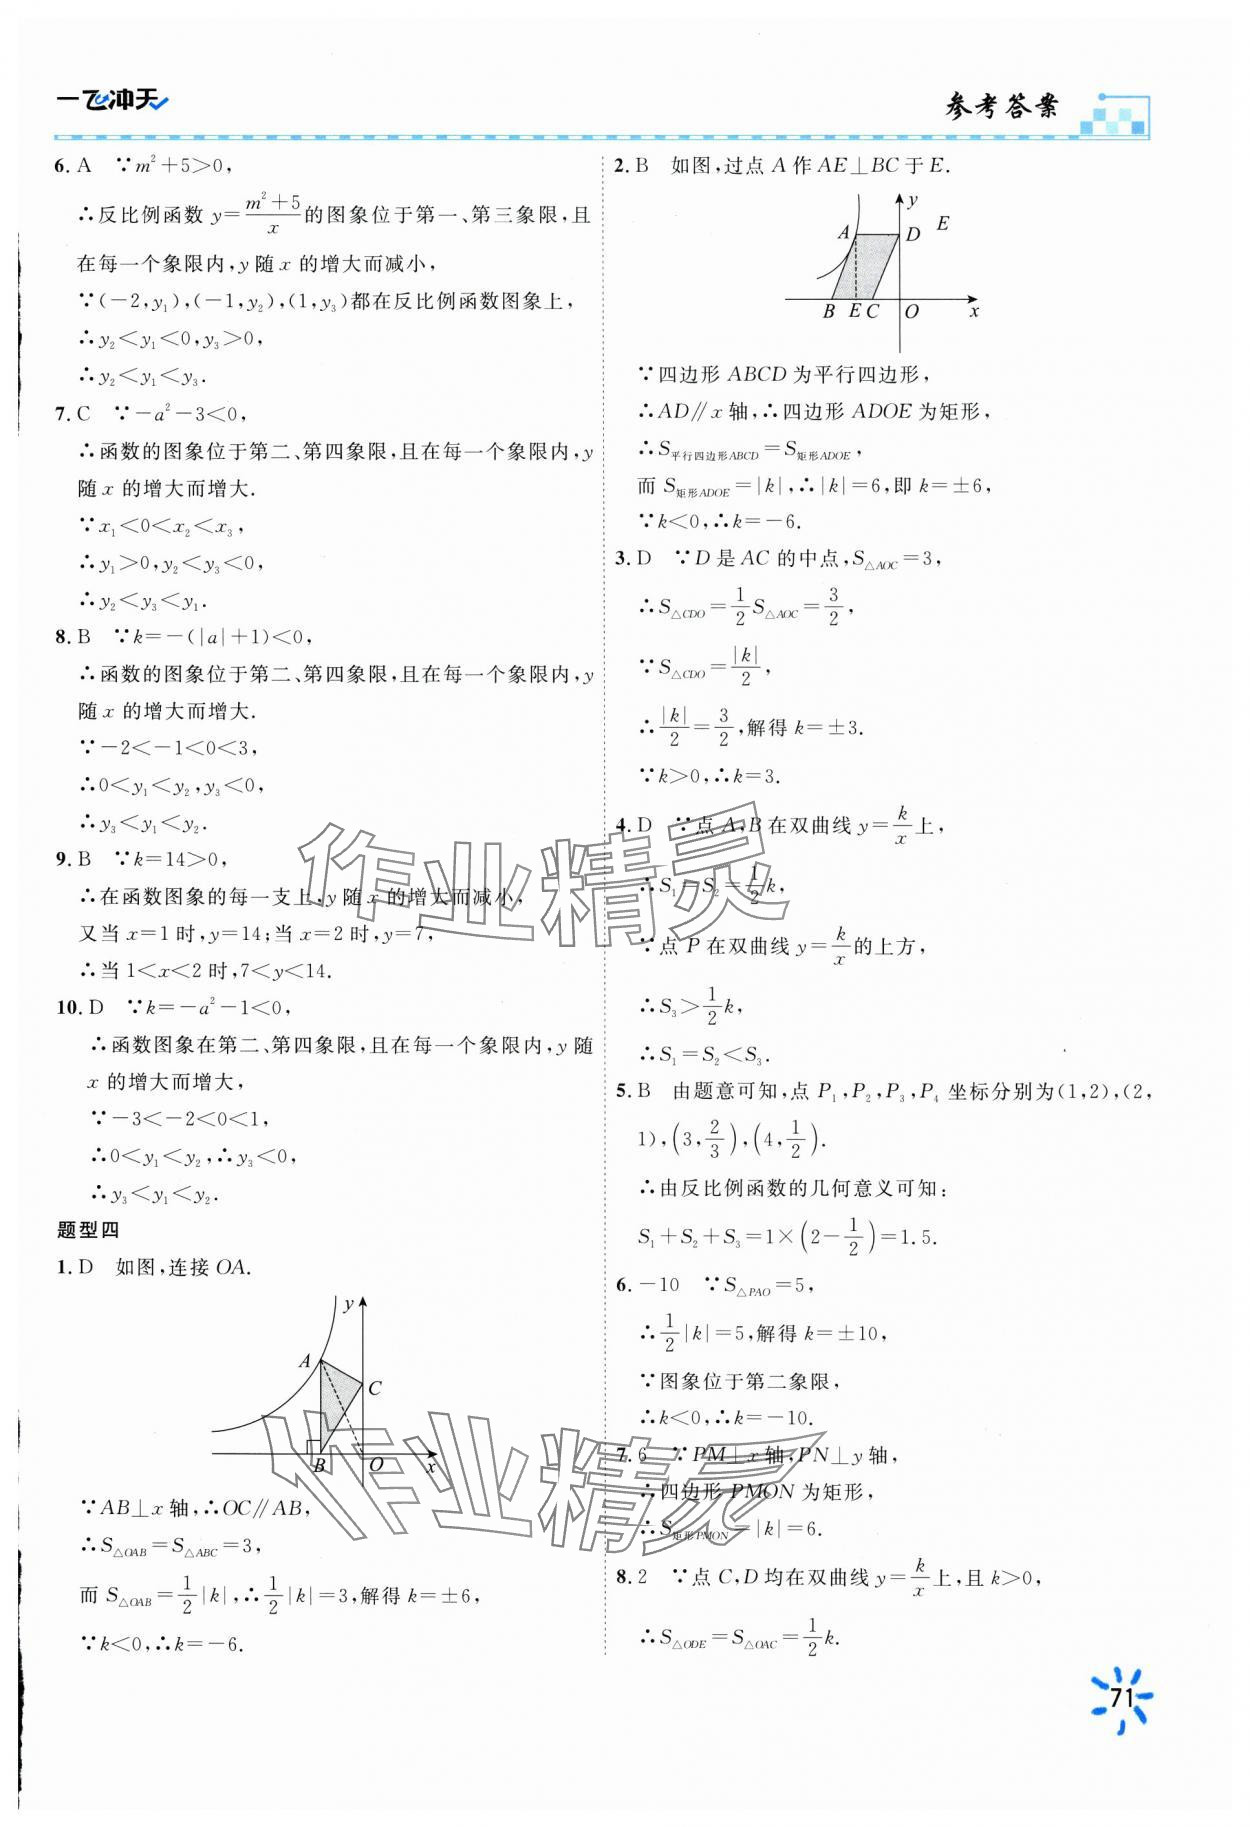 一飞冲天
参考答案
6. A ∵m²+5>0,
∴反比例函数 y=\frac{m²+5}{x}的图象位于第一、第三象限,且
在每一个象限内,y 随 x 的增大而减小,
∵(-2,y₁),(-1,y₂),(1,y₃)都在反比例函数图象上,
∴y₂<y₁<0,y₃>0,
∴y₂<y₁<y₃.
7. C ∵-a²-3<0,
∴函数的图象位于第二、第四象限,且在每一个象限内,y
随 x 的增大而增大.
∵x₁<0<x₂<x₃,
∴y₁>0,y₂<y₃<0,
∴y₂<y₃<y₁.
8. B ∵k=-(|a|+1)<0,
∴函数的图象位于第二、第四象限,且在每一个象限内,y
随 x 的增大而增大.
∵-2<-1<0<3,
∴0<y₁<y₂,y₃<0,
∴y₃<y₁<y₂.
9. B ∵k=14>0,
∴在函数图象的每一支上,y 随 x 的增大而减小,
又当 x=1 时,y=14;当 x=2 时,y=7,
∴当 1<x<2 时,7<y<14.
10. D ∵k=-a²-1<0,
∴函数图象在第二、第四象限,且在每一个象限内,y 随
x 的增大而增大,
∵-3<-2<0<1,
∴0<y₁<y₂,∴y₃<0,
∴y₃<y₁<y₂.
题型四
1. D 如图,连接 OA.
y
A
C
B O x
∵AB⊥x 轴,∴OC∥AB,
∴S△OAB=S△ABC=3,
而 S△OAB=\frac{1}{2}|k|,∴\frac{1}{2}|k|=3,解得 k=±6,
∵k<0,∴k=-6.
2. B 如图,过点 A 作 AE⊥BC 于 E.
y
A D E
B E C O x
∵四边形 ABCD 为平行四边形,
∴AD∥x 轴,∴四边形 ADOE 为矩形,
∴S平行四边形ABCD=S矩形ADOE,
而 S矩形ADOE=|k|,∴|k|=6,即 k=±6,
∵k<0,∴k=-6.
3. D ∵D 是 AC 的中点,S△AOC=3,
∴S△CDO=\frac{1}{2}S△AOC=\frac{3}{2},
∵S△CDO=\frac{|k|}{2},
∴\frac{|k|}{2}=\frac{3}{2},解得 k=±3.
∵k>0,∴k=3.
4. D ∵点 A,B 在双曲线 y=\frac{k}{x}上,
∴S₁=S₂=\frac{1}{2}k,
∵点 P 在双曲线 y=\frac{k}{x}的上方,
∴S₃>\frac{1}{2}k,
∴S₁=S₂<S₃.
5. B 由题意可知,点 P₁,P₂,P₃,P₄ 坐标分别为(1,2),(2,
1),(3,\frac{2}{3}),(4,\frac{1}{2}).
∴由反比例函数的几何意义可知:
S₁+S₂+S₃=1×(2-\frac{1}{2})=1.5.
6. -10 ∵S△PAO=5,
∴\frac{1}{2}|k|=5,解得 k=±10,
∵图象位于第二象限,
∴k<0,∴k=-10.
7. 6 ∵PM⊥x 轴,PN⊥y 轴,
∴四边形 PMON 为矩形,
∴S矩形PMON=|k|=6.
8. 2 ∵点 C,D 均在双曲线 y=\frac{k}{x}上,且 k>0,
∴S△ODE=S△OAC=\frac{1}{2}k.
作业精灵
作业精灵
71